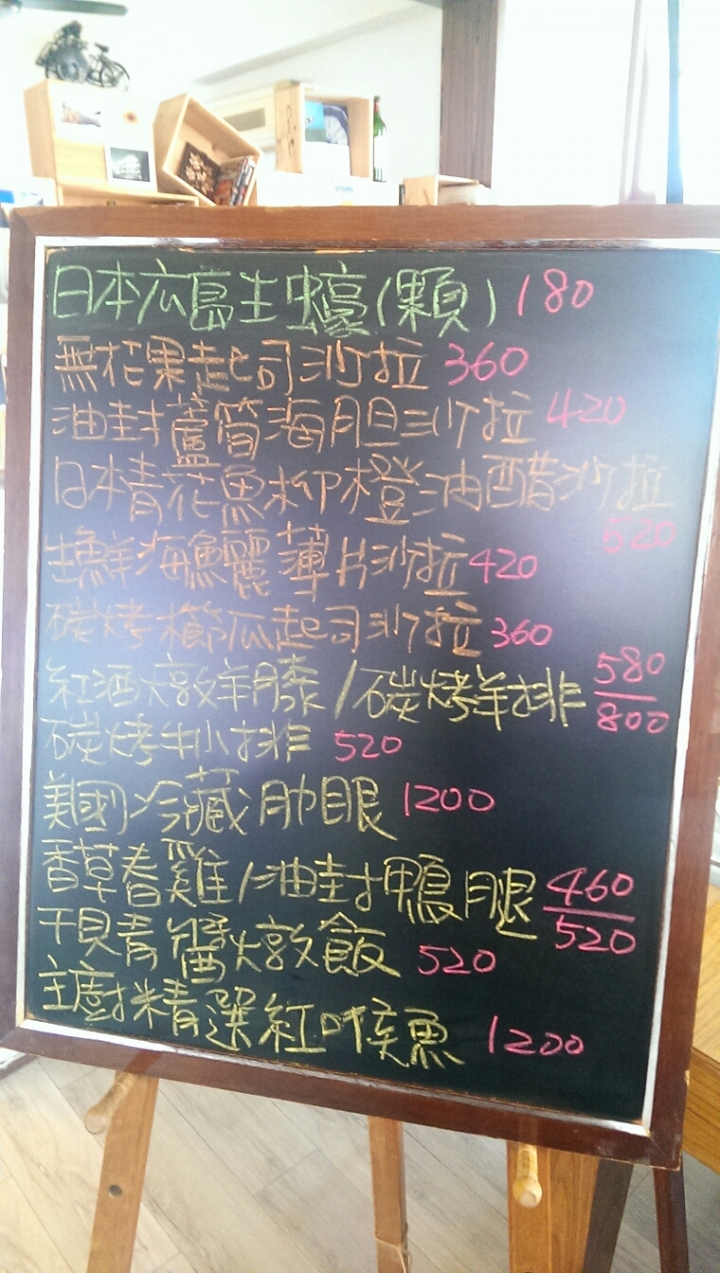 日本広島生蠔(顆) 180
無花果起司沙拉 360
油封蘆筍海胆沙拉 420
日本青花魚柳橙油醋沙拉
520
生鮮海鱺薄片沙拉 420
碳烤櫛瓜起司沙拉 360
紅酒燉羊膝/碳烤羊排 580/800
碳烤牛小排 520
美國冷藏肋眼 1200
香草春雞/油封鴨腿 460/520
干貝青醬燉飯 520
主廚精選紅喉魚 1200